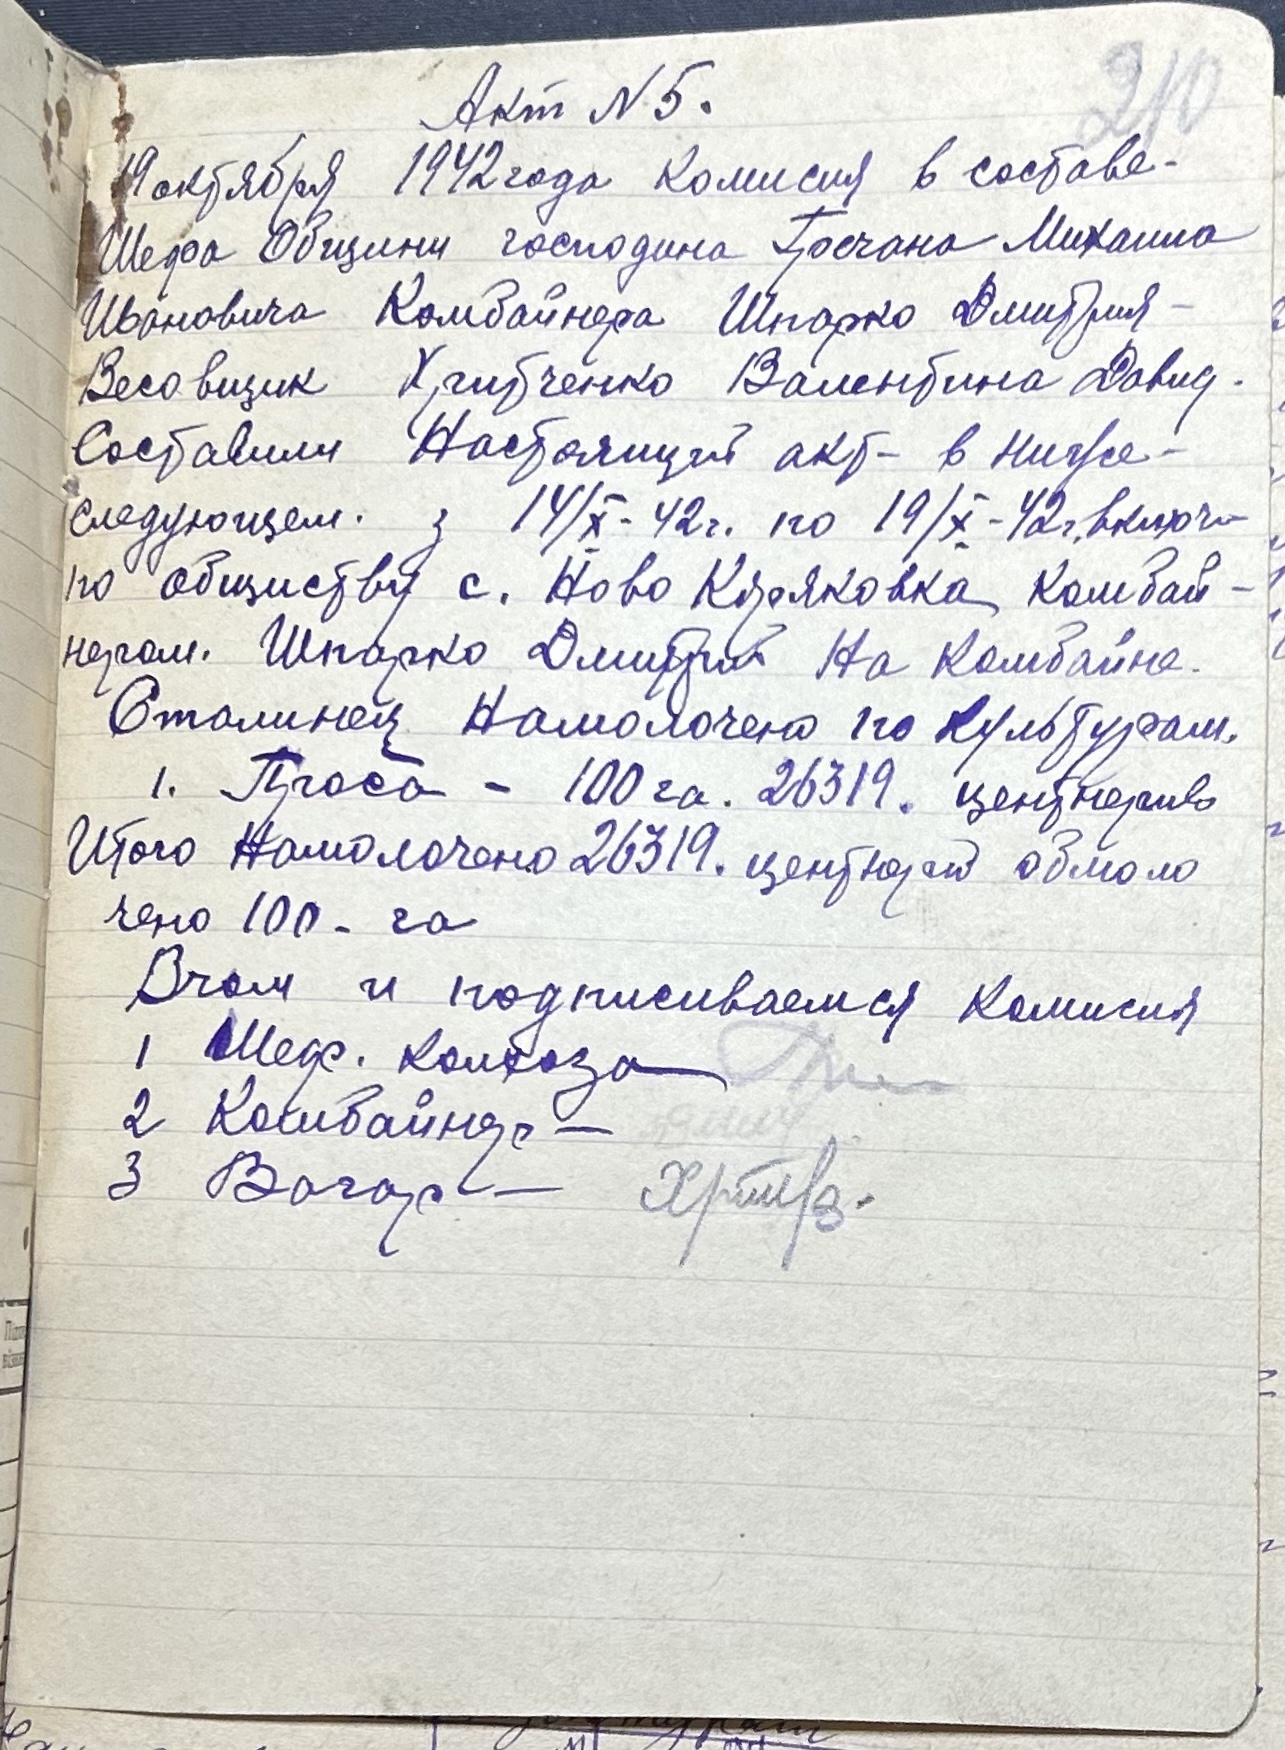 210
Акт N 5.
19 октября 1942 года комисия в составе-
Шефа Общины господина Гречана Михаила
Ивановича Комбайнера Шпарко Дмитрия-
Весовщик Хрипченко Валентина Давид.
Составили Настоящий акт- в ниже-
следующем. з 14/X-42г. по 19/X-42г. включ-
по обществу с. Ново Киряковка комбай-
нером. Шпарко Дмитрий На комбайне.
Сталинец Намолочено по культурам.
1. Проса - 100 га. 26319. центнерив
Итого Намолочено 26319. центнерив обмоло
чено 100 - га
Вчом и подписиваемся комисия
1 Шеф. колхоза
2 Комбайнер -
3 Вагар -